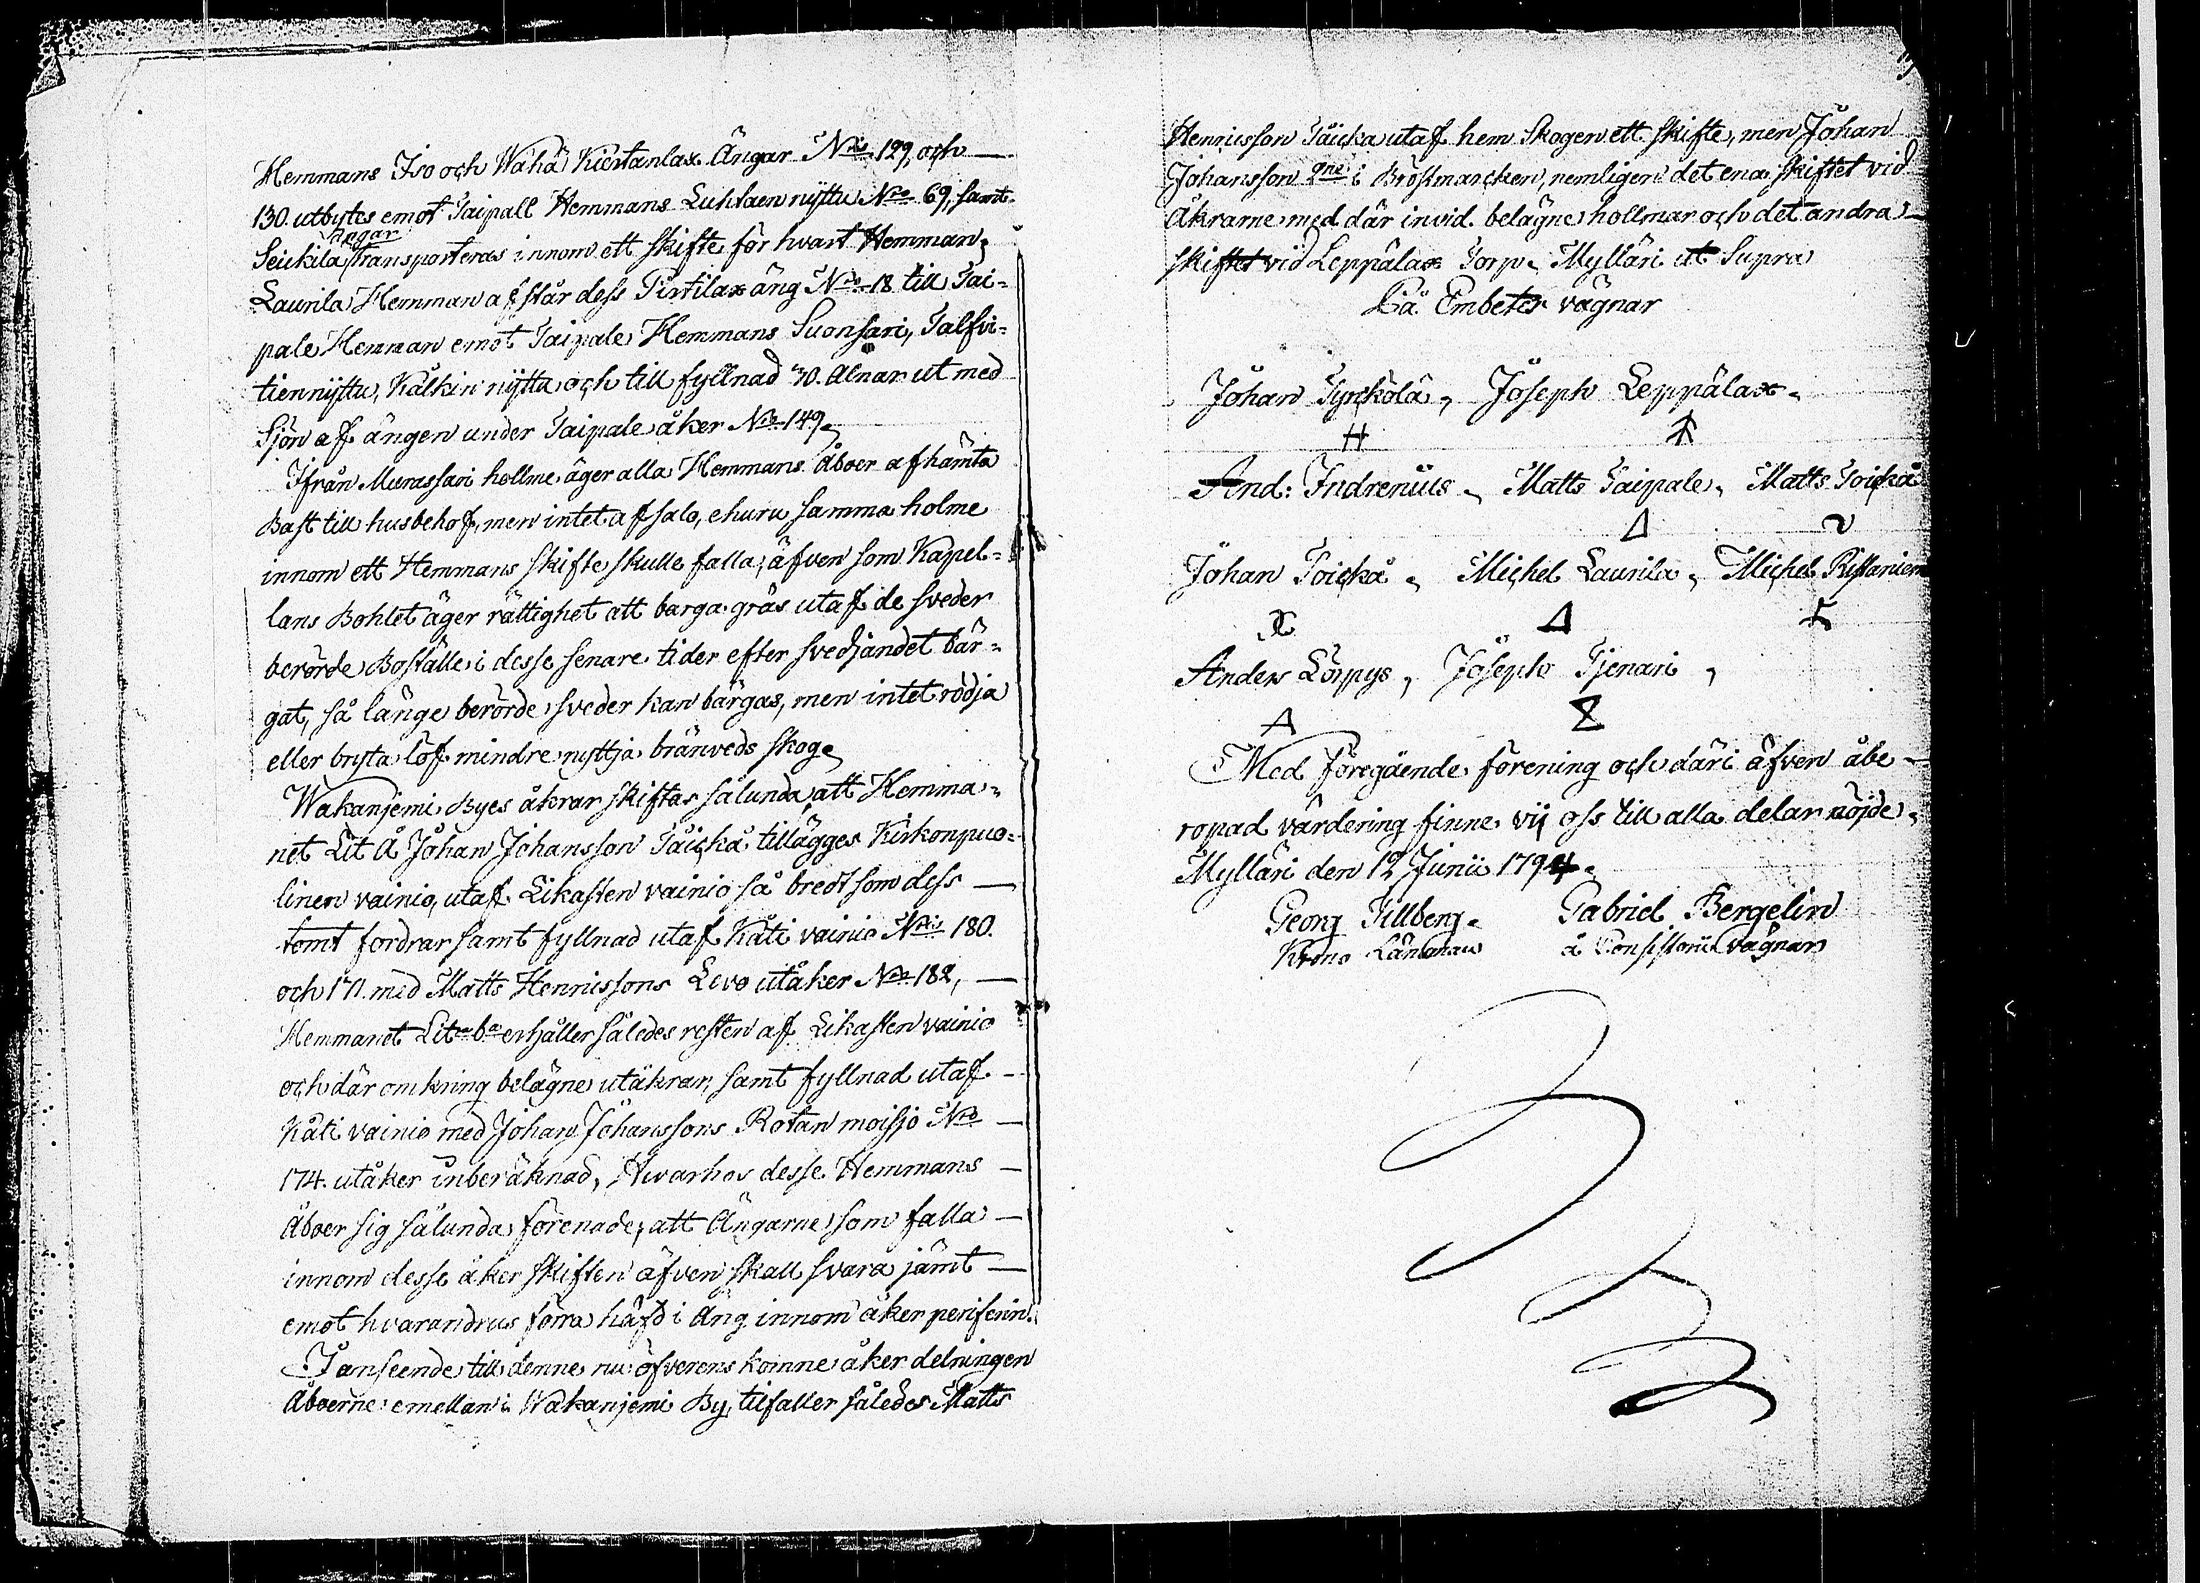 Hemmans Iso och Wähä Kiertanlax Ängar Nris 129, och
130. utbytes emot Taipall Hemmans Luhtaen nijttu Nro 69, samt
Ängar
Seickila transporteras innom ett skifte för hvart Hemman,
Laurila Hemman afstår dess Pirtilax äng Nro 18 till Tai-
pale Hemman emot Taipale Hemmans Suonsari, Talfvi-
tiennijttu, Kälkin nijttu och till fyllnad 30. Alnar ut med
Sjön af ängen under Taipale åker Nro 149.
Ifrån Murassari hollme äger alla Hemmans Åboer afhämta
Bast till husbehof, men intet afsalo, ehuru samma holme
innom ett Hemmans skifte skulle falla; äfven som Kapel-
lans Bohlet äger rättighet att barga gräs utaf de sveder
berörde Boställe i desse senare tider efter svedjandet bär-
gat, så länge berörde sveder kan bärgas, men intet rödja
eller bryta löf mindre nyttja bränveds skog.
Wakanjemi Byes åkrar skiftas sålunda att Hemma-
net Lit A Johan Johansson Täickä tillägges Kirkonpuo-
linen vainio, utaf Likasten vainio så bredt som dess
tomt fordrar samt fyllnad utaf Käti vainio Nris 180.
och 171. med Matts Henricssons Levo utåker Nro 182,
Hemmanet Lit ba erhåller således resten af Likasten vainio
och där omkring belägne utåkrar, samt fyllnad utaf
Käti vainio med Johan Johanssons Rotan moisjo Nro
174. utåker inberäknad, Hvarhos desse Hemmans
Åboer sig sålunda förenade, att Ängarne som falla
innom desse åker skiften äfven skall svara jämt
emot hvarandras förra häfd i Äng innom åker periferin.
I anseende till denne nu öfverens komne åker delningen
Åboerne emellan i Wakanjemi By, tilfaller således Matts
Henricsson Täicka utaf hem Skogen ett skifte, men Johan
Johansson i Bröstmarcken, nemligen det ena skiftet vid
Åkrarne med där invid belägne hollmar och det andra
skiftet vid Leppälax Torp. Mylläri ut Supra
På Embetes vägnar
Johan Tynckölä, Joseph Leppälax.
And: Indrenius, Matts Taipale, Matts Toickä
Johan Toickä, Michel Laurila, Michel Ristaniem
Anders Lörpys, Joseph Tjenari,
Med föregående förening och däri äfven åbe-
ropad värdering finne vij oss till alla delar nöjde.
Mylläri den 12 Junii 1794.
Georg Tillberg. Gabriel Bergelin
Krono Länsman å Consistorii vägnar